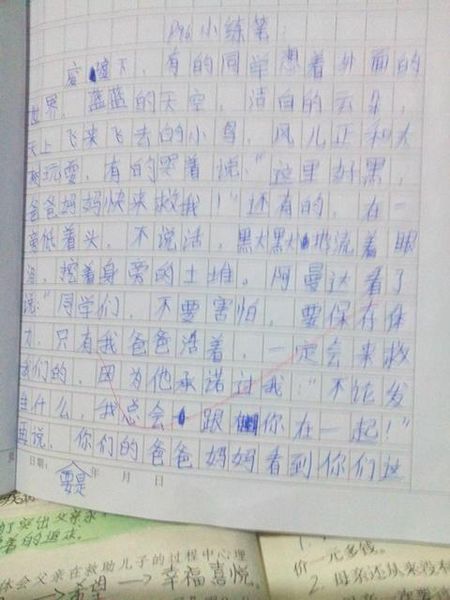 P96小练笔:
废墟下,有的同学想着外面的
世界,蓝蓝的天空,洁白的云朵,
天上飞来飞去的小鸟,风儿正和大
树玩耍,有的哭着说:“这里好黑,
爸爸妈妈快来救我!”还有的,在一
旁低着头,不说话,默默地流着眼
泪,挖着身旁的土堆。阿曼达看了
说:“同学们,不要害怕,要保存体
力,只有我爸爸活着,一定会来救
我们的,因为他承诺过我:‘不论发
生什么,我总会跟你在一起!’
再说,你们的爸爸妈妈看到你们这
日期: 年 月 日
要是
突出父亲
着的
体会父亲在救助儿子的过程中心理
希望→幸福喜悦。
1.
价一元多钱。
2. 母亲还从来没有